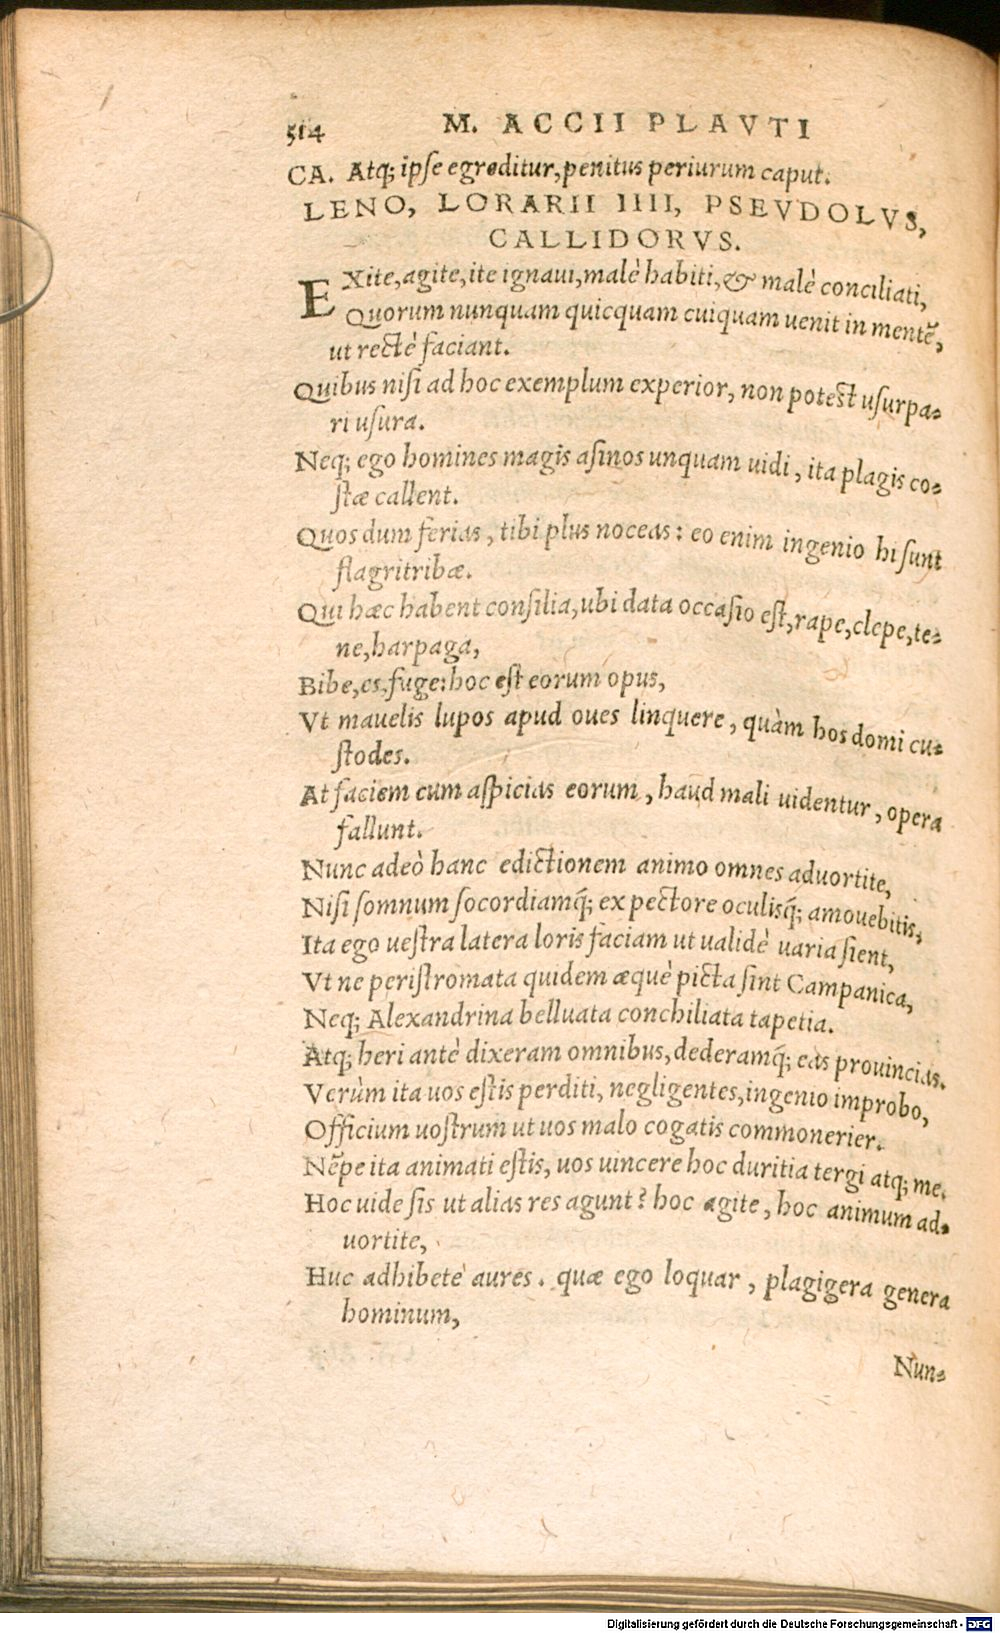 514 M. ACCII PLAVTI
CA. Atq; ipse egreditur, penitus periurum caput.
LENO, LORARII IIII, PSEVDOLVS,
CALLIDORVS.
EXite, agite, ite ignaui, malè habiti, & malè conciliati,
Quorum nunquam quicquam cuiquam uenit in mentẽ,
ut rectè faciant.
Quibus nisi ad hoc exemplum experior, non potest usurpa-
ri usura.
Neq; ego homines magis asinos unquam uidi, ita plagis co-
stæ callent.
Quos dum ferias, tibi plus noceas: eo enim ingenio hi sunt
flagritribæ.
Qui hæc habent consilia, ubi data occasio est, rape, clepe, te-
ne, harpaga,
Bibe, es, fuge: hoc est eorum opus,
Vt mauelis lupos apud oues linquere, quàm hos domi cu-
stodes.
At faciem cum aspicias eorum, haud mali uidentur, opera
fallunt.
Nunc adeò hanc edictionem animo omnes aduortite,
Nisi somnum socordiamq́; ex pectore oculisq́; amouebitis,
Ita ego uestra latera loris faciam ut ualidè uaria sient,
Vt ne peristromata quidem æquè picta sint Campanica,
Neq; Alexandrina belluata conchiliata tapetia.
Atq; heri antè dixeram omnibus, dederamq́; eas prouincias.
Verùm ita uos estis perditi, negligentes, ingenio improbo,
Officium uostrum ut uos malo cogatis commonerier.
Nẽpe ita animati estis, uos uincere hoc duritia tergi atq; me.
Hoc uide sis ut alias res agunt? hoc agite, hoc animum ad-
uortite,
Huc adhibete aures. quæ ego loquar, plagigera genera
hominum,
Nun-
Digitalisierung gefördert durch die Deutsche Forschungsgemeinschaft - DFG